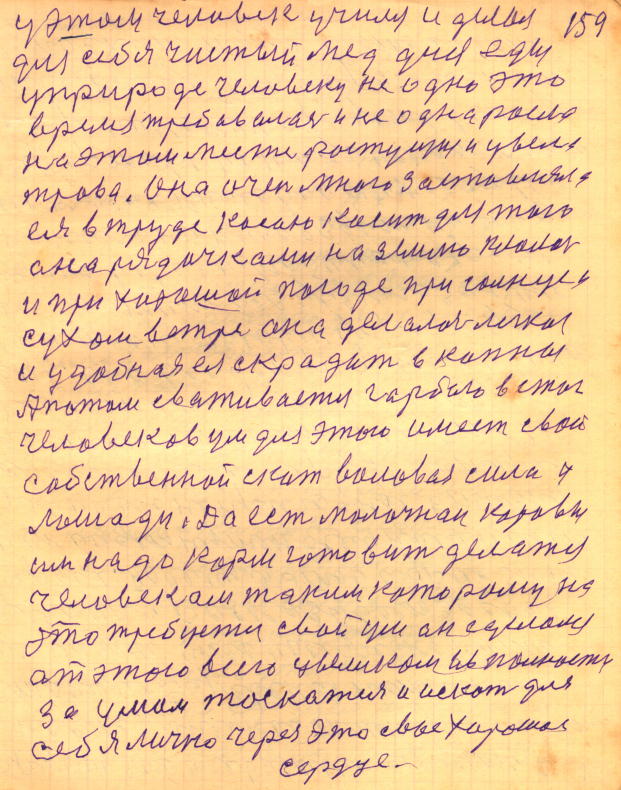 у этом человек учился и делал 159
для себя чистый мед для еды
у природе человеку не одно это
время требовалась и не одна росла
на этом месте ростущия и цвела
трова. Она очен много заставляла
ея в труде косаю косит для того
она рядочками на землю клалас
и при хорошой погоде при солнце и
сухом ветре она делалас легкая
и удобная ея скрадат в копны
А потом сватывается гарбою в стог
человеков ум для этого имеет свой
собственной скот воловая сила и
лошади. Да ест молочнаи коровы
им надо корм готовит делатся
человекам таким которому на
это требуется свой ум
ат этого всего целиком полностю
за умом тоскатся и искат для
себя лично через это свое хорошое
сердце –